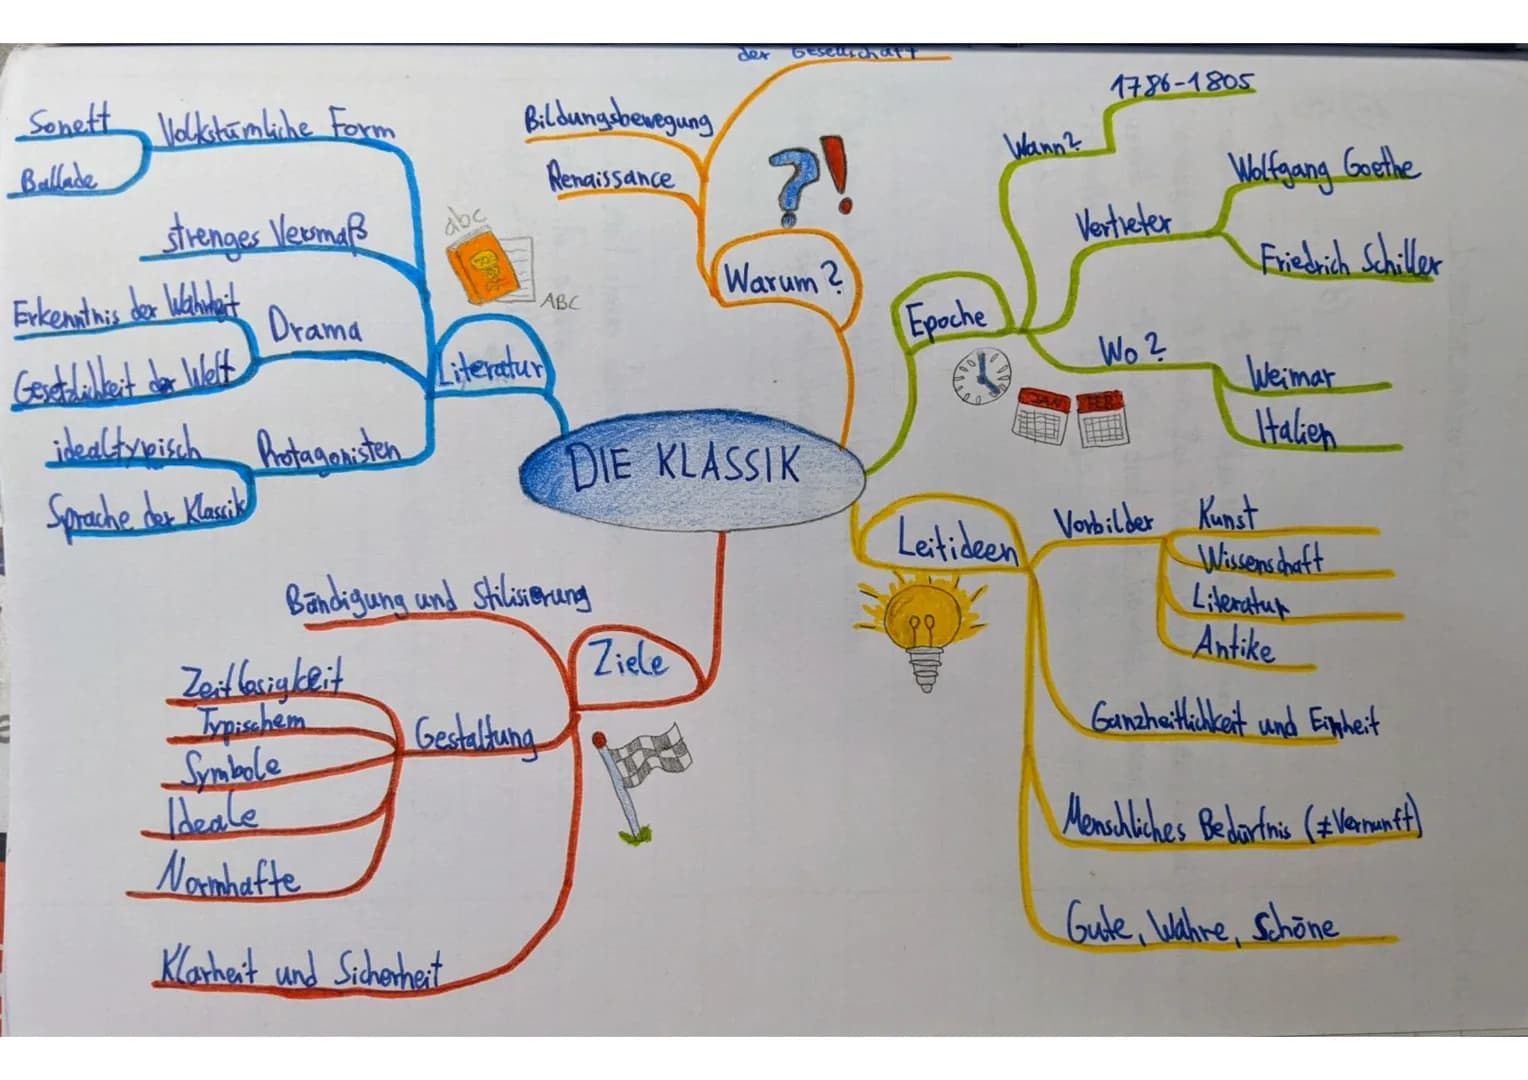 DIE KLASSIK
der Gesellschaft
Bildungsbewegung
Renaissance
Warum?
?!
Epoche
Wann?
1786-1805
Vertreter
Wolfgang Goethe
Friedrich Schiller
Wo?
Weimar
Italien
JAN
FEB
Leitideen
Vorbilder
Kunst
Wissenschaft
Literatur
Antike
Ganzheitlichkeit und Einheit
Menschliches Bedürfnis (≠Vernunft)
Gute, Wahre, Schöne
Ziele
Bändigung und Stilisierung
Gestaltung
Zeitlosigkeit
Typischem
Symbole
Ideale
Normhafte
Klarheit und Sicherheit
Literatur
abc
ABC
Volkstümliche Form
Sonett
Ballade
strenges Versmaß
Drama
Erkenntnis der Wahrheit
Gesetzlichkeit der Welt
Protagonisten
idealtypisch
Sprache der Klassik